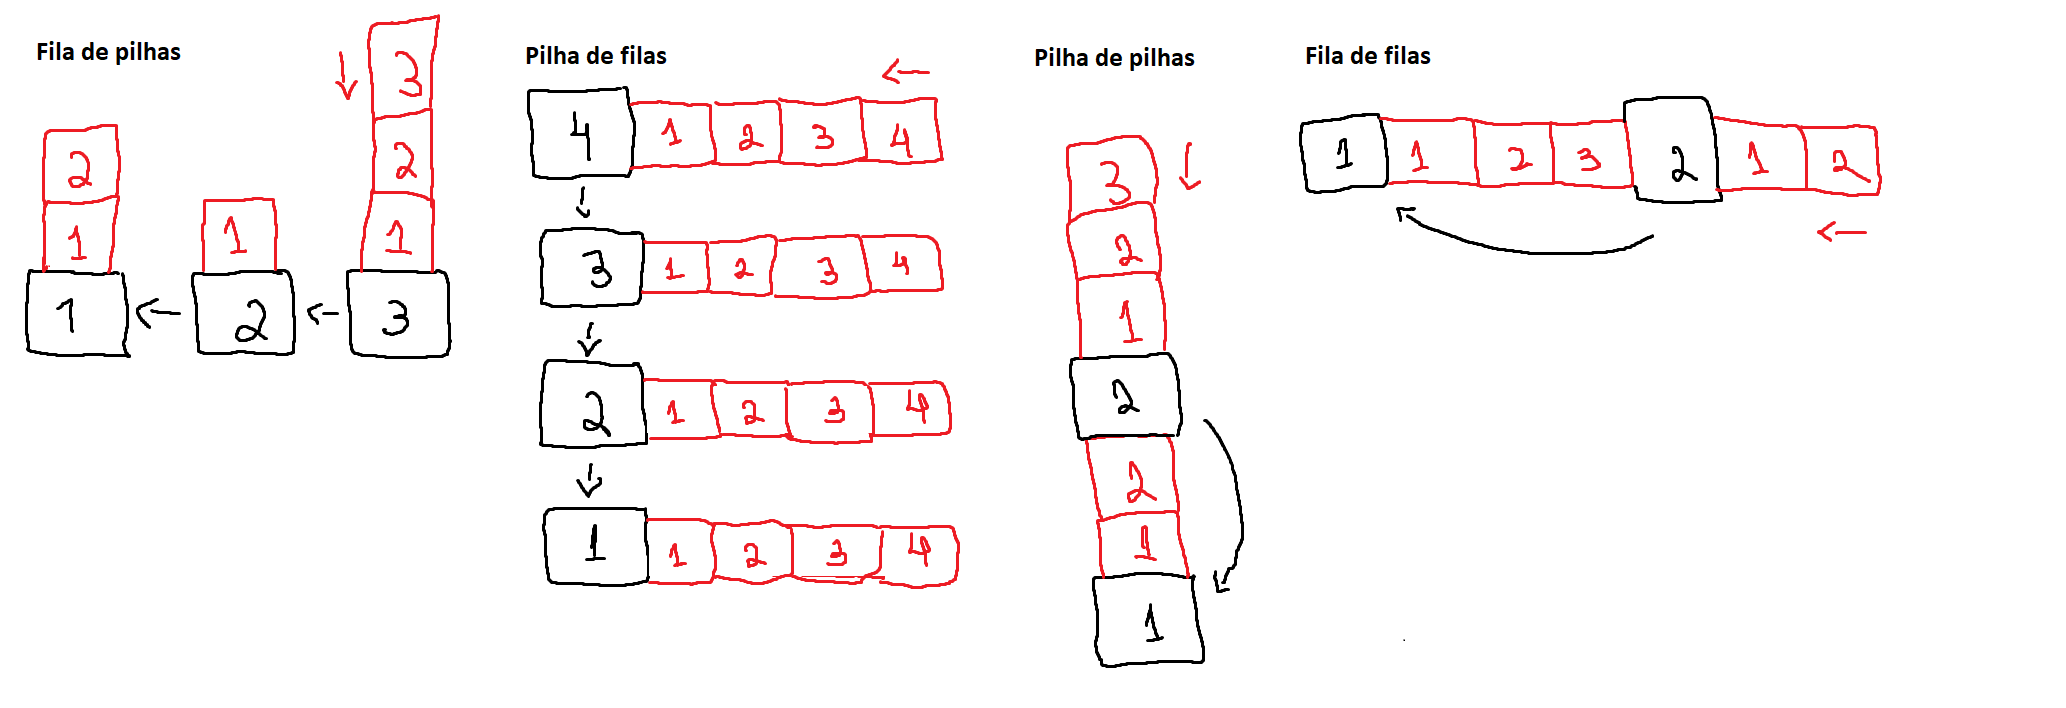 Fila de pilhas
3
2
2
1
1
1
1
2
3
Pilha de filas
4 1 2 3 4
3 1 2 3 4
2 1 2 3 4
1 1 2 3 4
Pilha de pilhas
3
2
1
2
2
1
1
Fila de filas
1 1 2 3 2 1 2